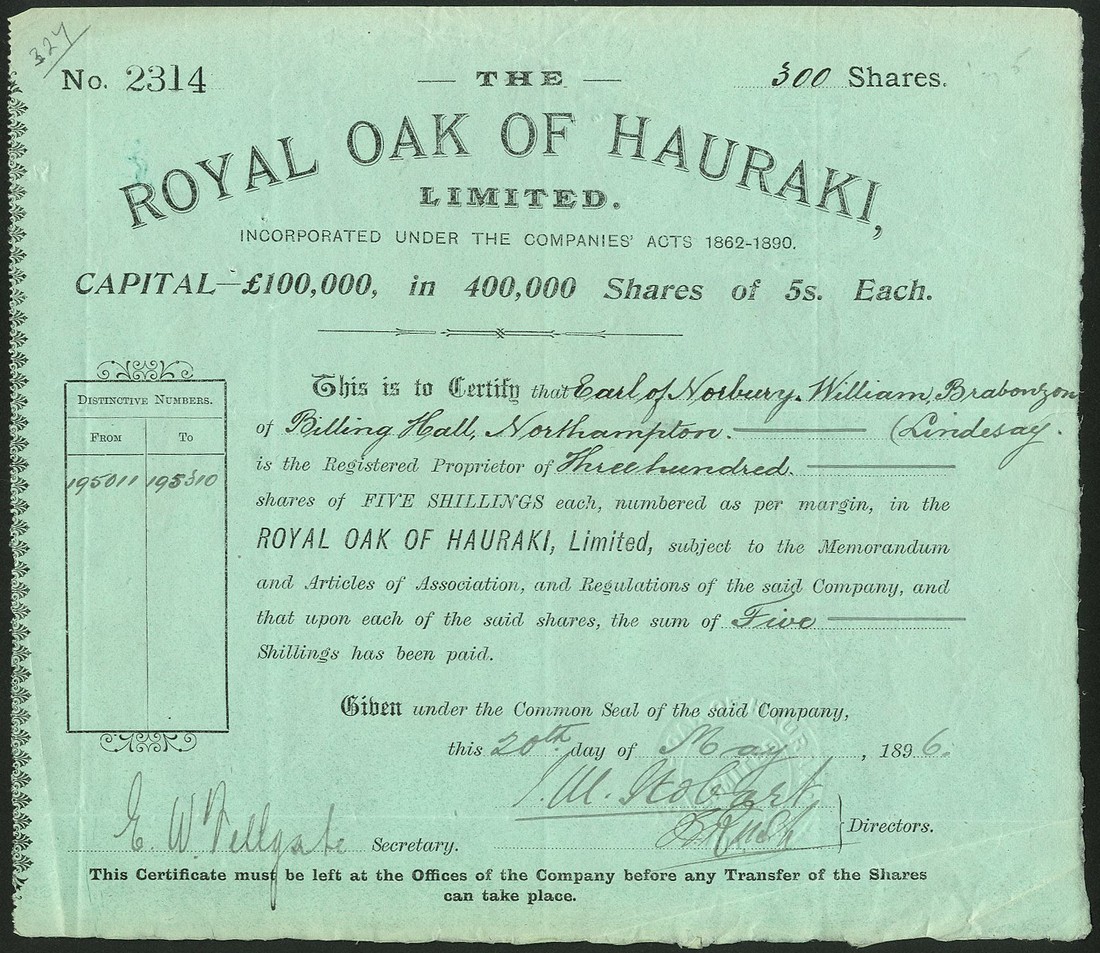 327
No. 2314
300 Shares.
— THE —
ROYAL OAK OF HAURAKI,
LIMITED.
INCORPORATED UNDER THE COMPANIES' ACTS 1862-1890.
CAPITAL—£100,000, in 400,000 Shares of 5s. Each.
DISTINCTIVE NUMBERS.
FROM To
195011 195310
This is to Certify that Earl of Norbury. William, Brabonzon
of Billing Hall, Northampton. (Lindesay.
is the Registered Proprietor of Three hundred.
shares of FIVE SHILLINGS each, numbered as per margin, in the
ROYAL OAK OF HAURAKI, Limited, subject to the Memorandum
and Articles of Association, and Regulations of the said Company, and
that upon each of the said shares, the sum of Five
Shillings has been paid.
Given under the Common Seal of the said Company,
this 20th day of May, 1896.
E. W. Secretary.
Stobart
Directors.
This Certificate must be left at the Offices of the Company before any Transfer of the Shares
can take place.